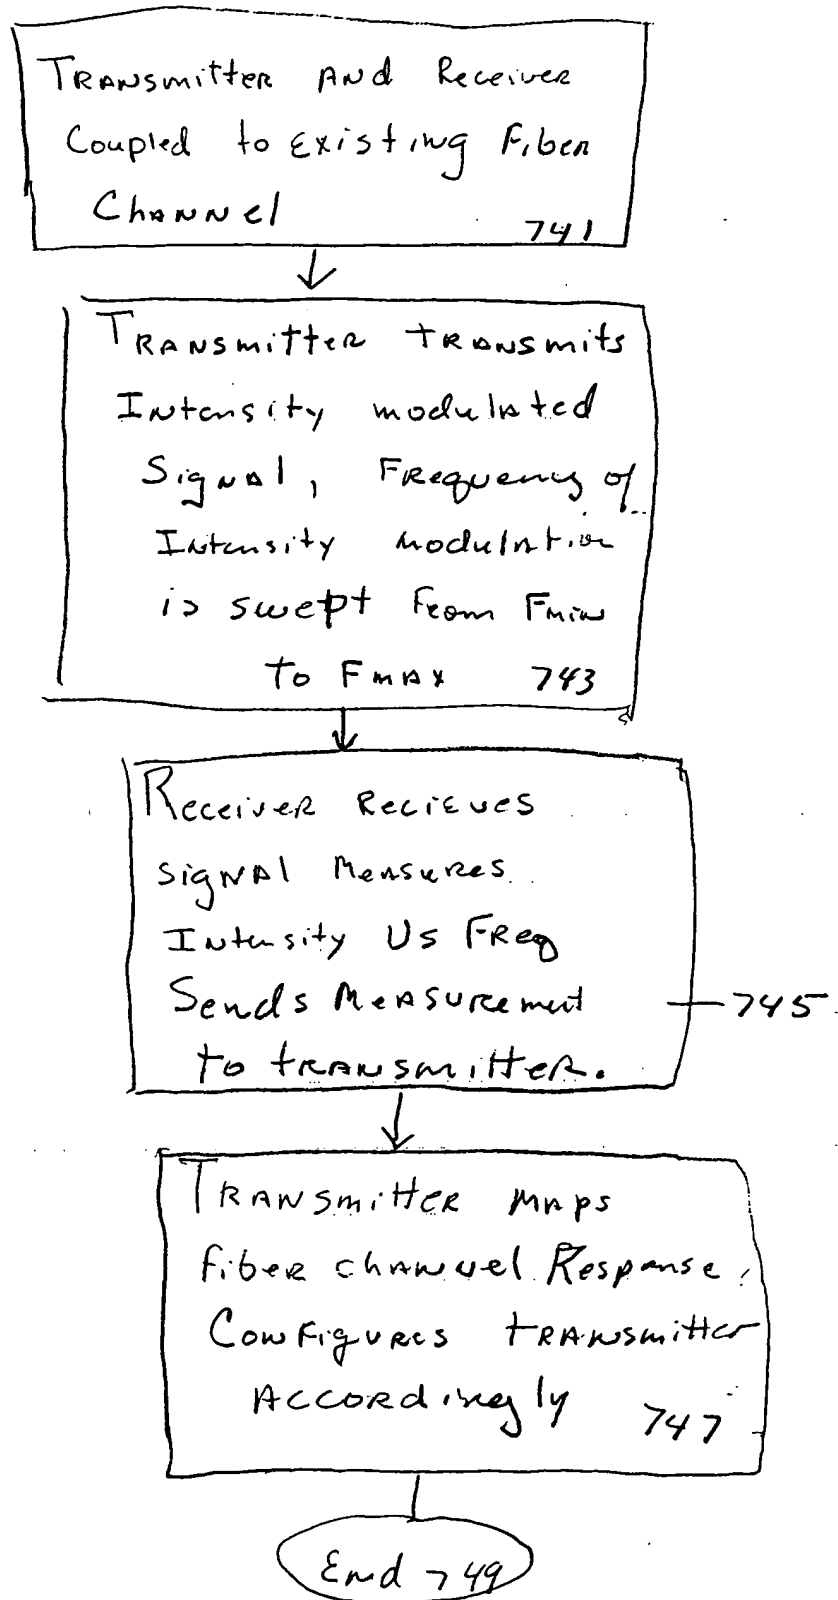 Transmitter and Receiver
Coupled to Existing Fiber
Channel
741
Transmitter transmits
Intensity modulated
Signal, Frequency of
Intensity modulation
is swept from Fmin
to Fmax 743
Receiver Recieves
signal Measures
Intensity Vs Freq
Sends Measurement
745
to transmitter.
Transmitter maps
fiber channel Response,
Configures transmitter
Accordingly
747
End 749